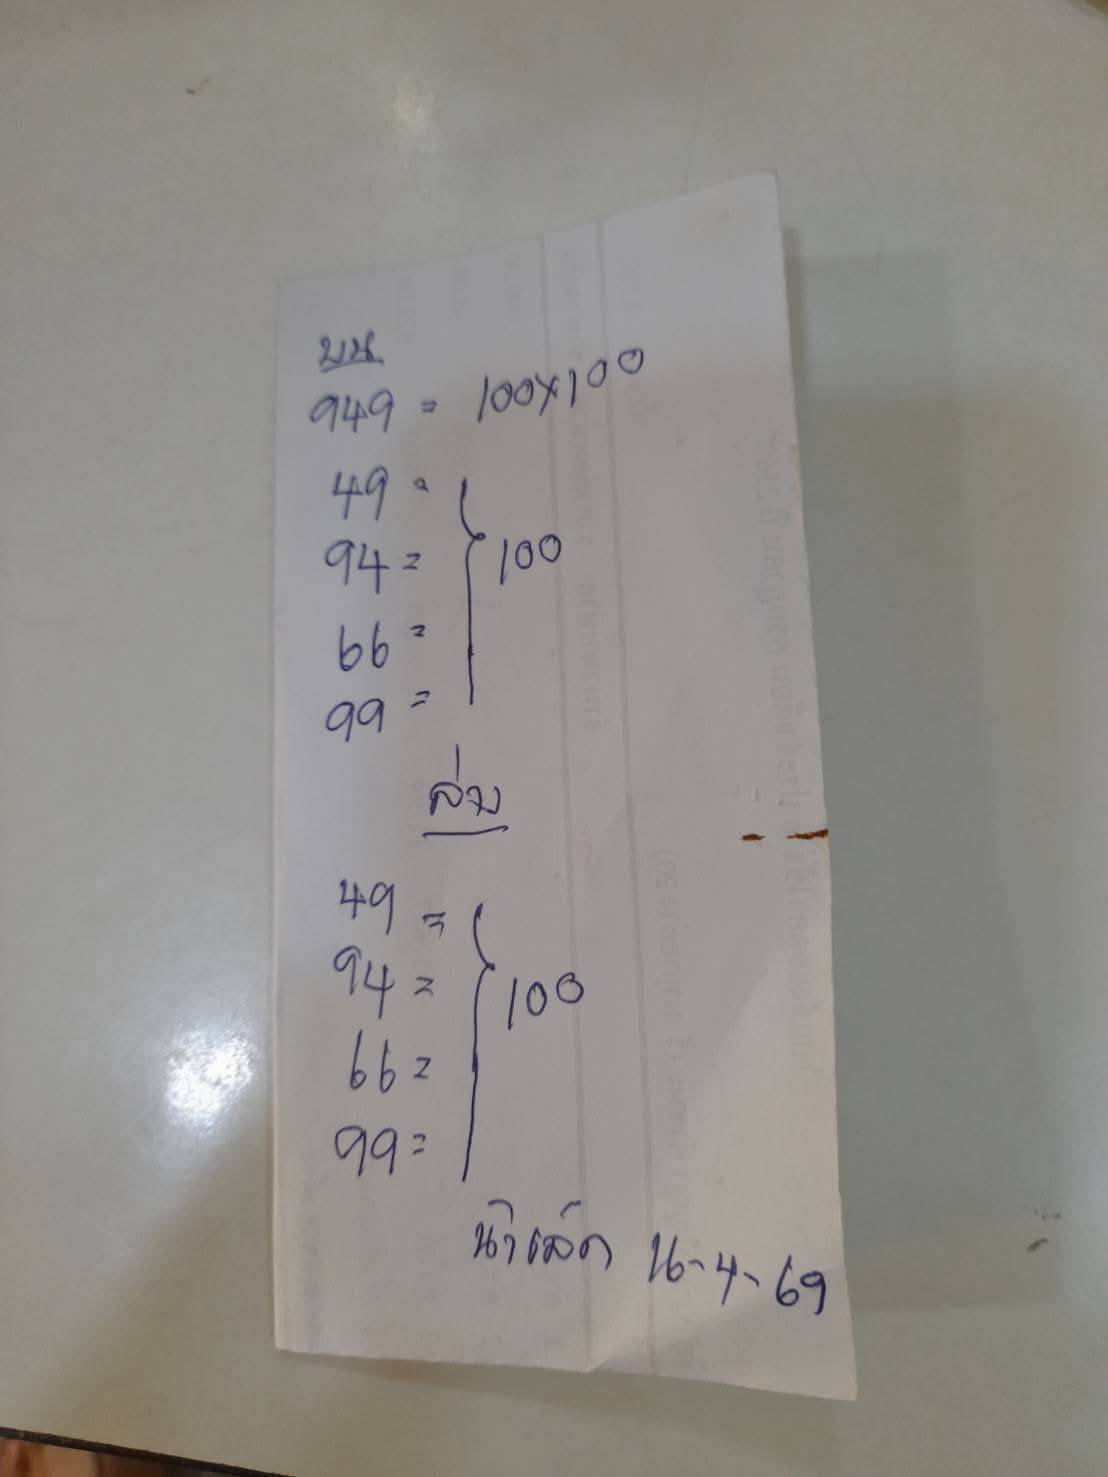 บน
949 = 100x100
49 =
94 =
66 =
99 =
} 100
ล่าง
49 =
94 =
66 =
99 =
} 100
16-4-69